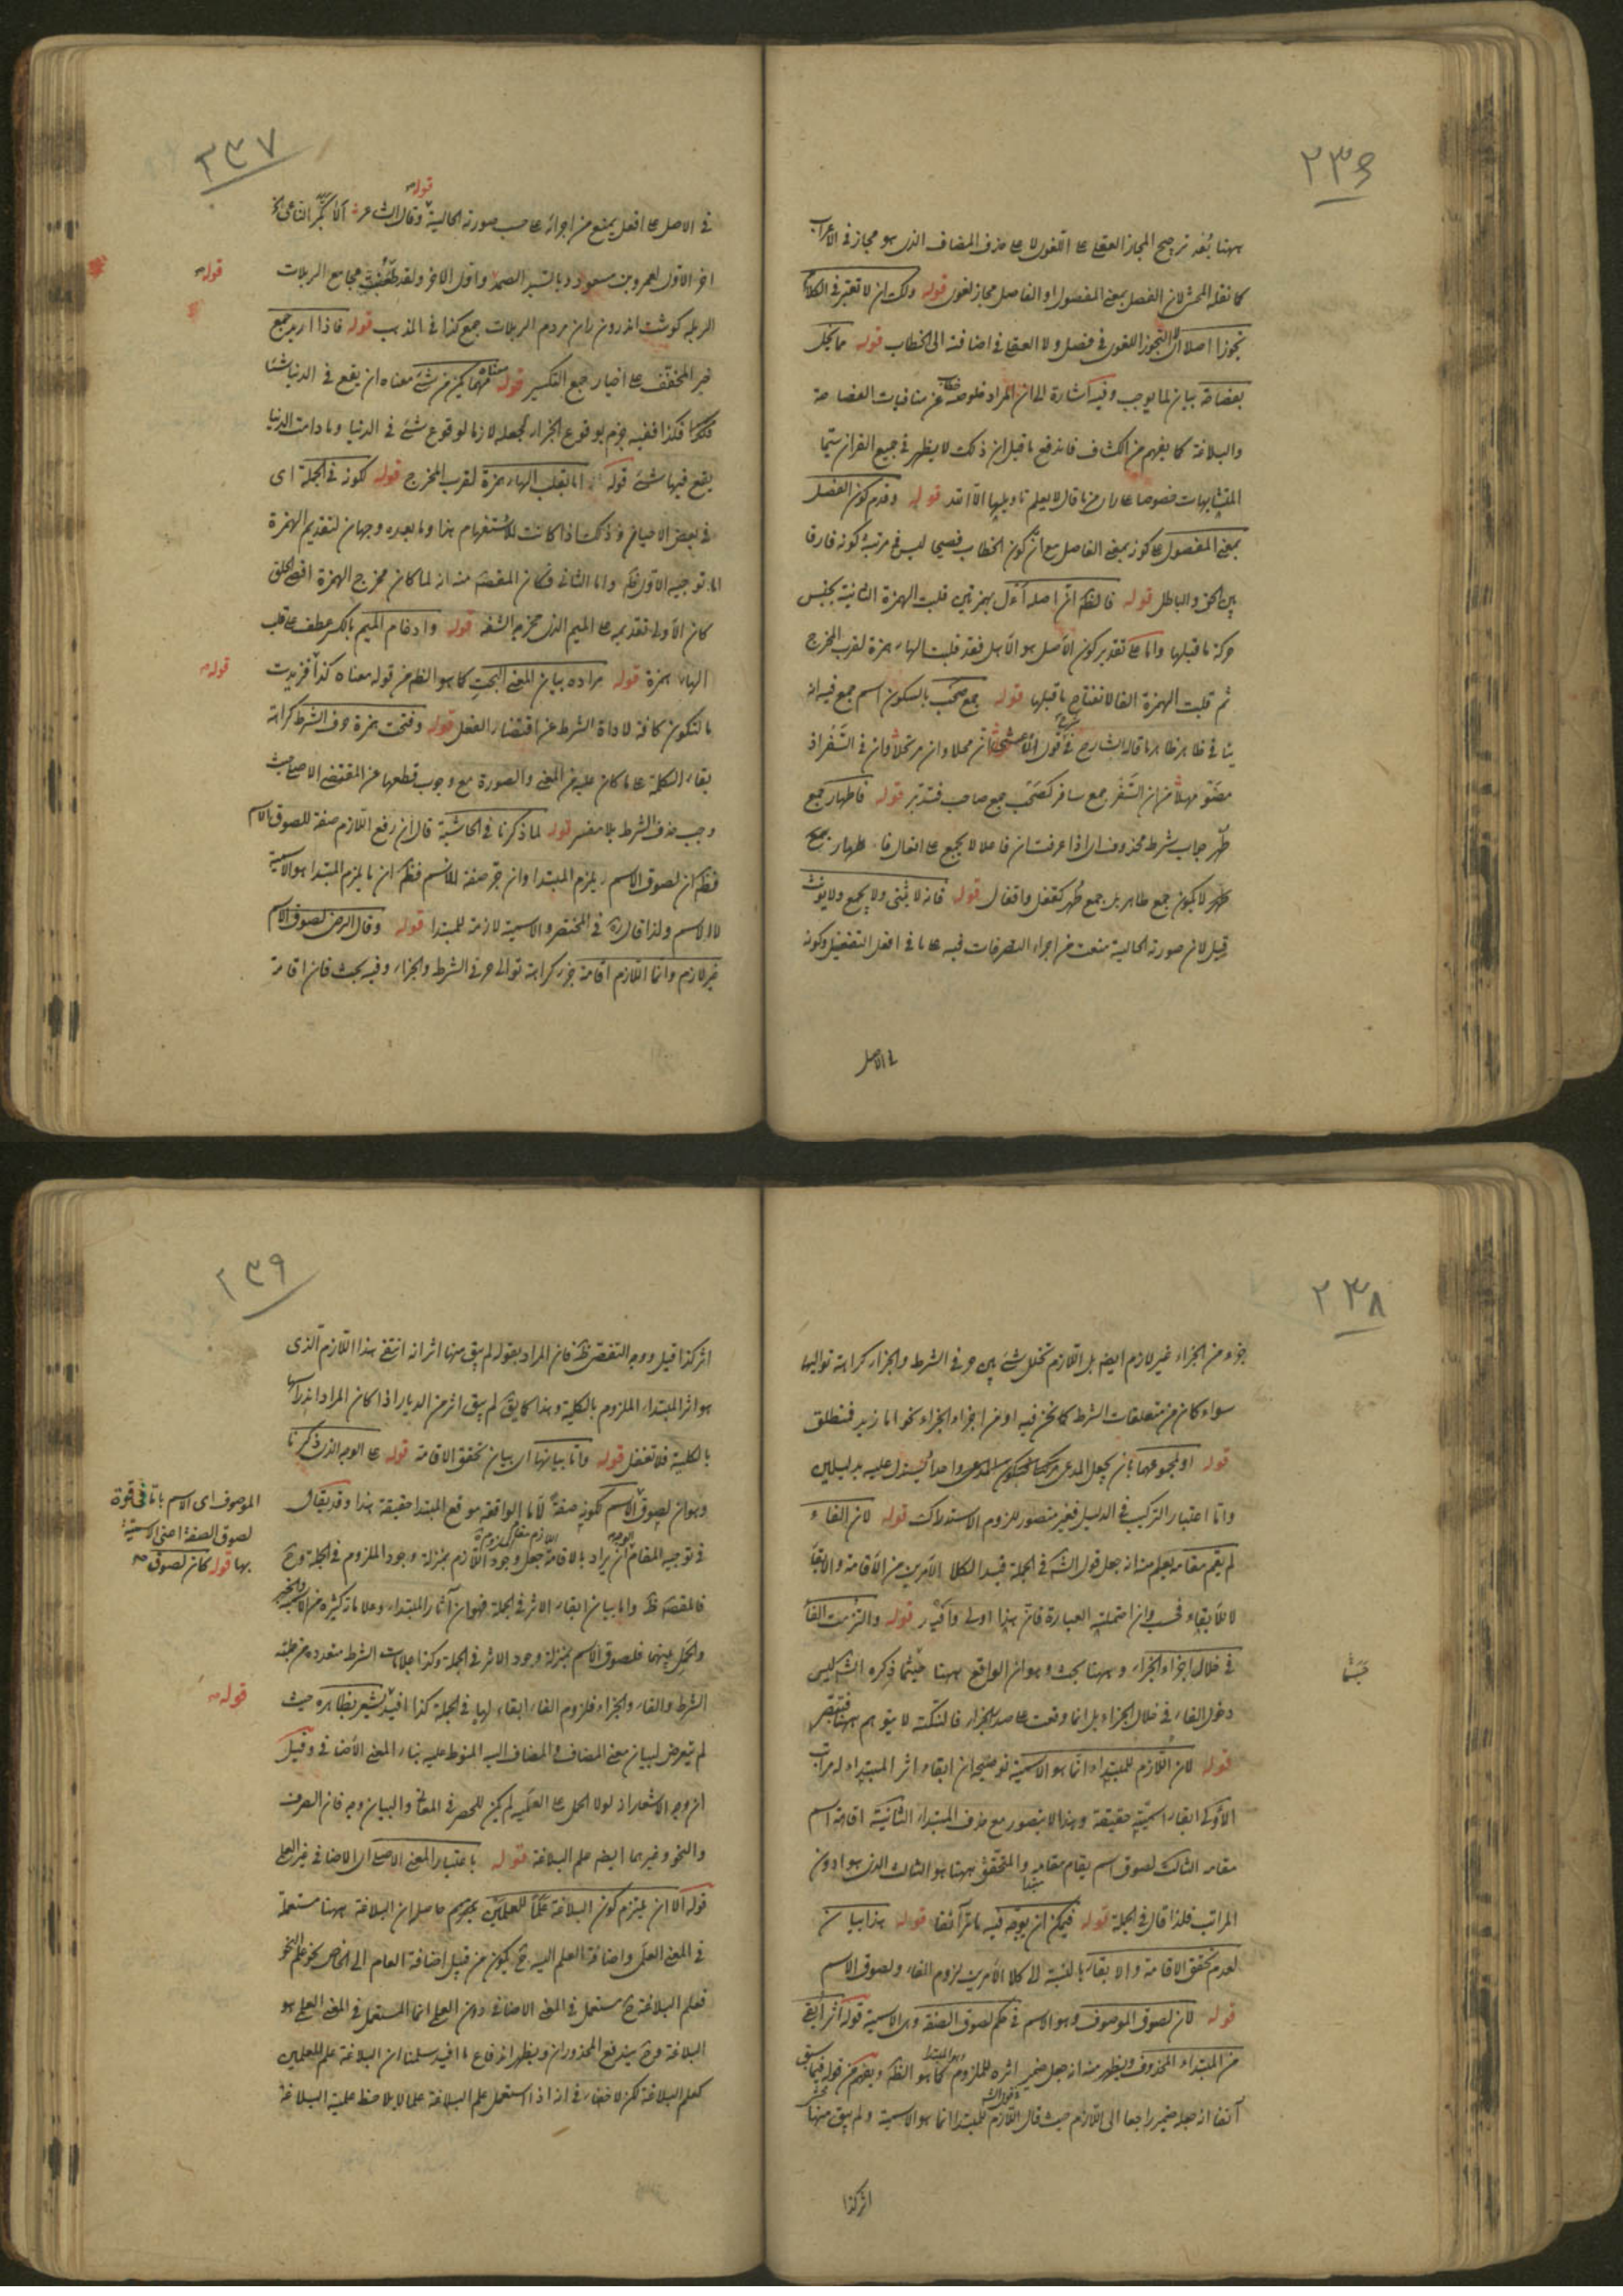 ٢٣٦
ههنا بُعد ترجيح المجاز العقلى على اللغوى لا على حذف المضاف الذى هو مجاز فى الاعراب
كما نقله المحشى لان الفصل بمعنى المفصول او الفاصل مجاز لغوى قوله ولك ان لا تعتبر فى الكلام
تجوزا اصلا لا التجوز اللغوى فى فصل ولا العقلى فى اضافته الى الخطاب قوله مما يخل
بفصاحته بيان لما يوجب وفيه اشارة الى ان المراد خلوصه عن منافيات الفصاحة
والبلاغة كما يفهم من الكشاف فاندفع ما قيل ان ذلك لا يظهر فى جميع القرآن سيما
المتشابهات خصوصا على راى من قال لا يعلم تاويلها الا الله قوله وقدم كون الفصل
بمعنى المفصول على كونه بمعنى الفاصل مع ان كون الخطاب فصيحا ليس فى مرتبة كونه فارقا
بين الحق والباطل قوله فالظ ان اصله أءل بهمزتين قلبت الهمزة الثانية بجنس
حركة ما قبلها واما على تقدير كون الاصل هو الاهل فقد قلبت الهاء همزة لقرب المخرج
ثم قلبت الهمزة الفا لانفتاح ما قبلها قوله جمع صحب بالسكون اسم جمع فيه انه
ينافى ظاهر ما قاله الشارح فى شرح قول الاعشى ان محلا وان مرتحلا وان فى السفر اذ
مضوا مهلا من ان السفر جمع سافر كصحب جمع صاحب فتدبر قوله فاطهار جمع
طهر جواب شرط محذوف اى اذا عرفت ان فاعلا لا يجمع على افعال فاطهار جمع
طهر لا يكون جمع طاهر بل جمع طهر كقفل واقفال قوله فانه لا يثنى ولا يجمع ولا يؤنث
قيل لان صورته الحالية منعت من اجراء التصرفات فيه على ما فى افعل التفضيل وكونه
فى الاصل
٢٣٧
قوله
فى الاصل على افعل يمنع من اجرائه على حسب صورته الحالية وقال الشاعر الا بكر الناعى
اخر الاول لعمرو بن مسعود وبالسيد الصمد واول الاخر ولقد طعنت مجامع الربلات
قوله
الربلة كوشت اندرون ران مردم الربلات جمع كذا فى المذهب قوله فاذا اريد جمع
خير المخفف على اخيار جمع التكسير قوله معناه مهما يكن من شئ معناه ان يقع فى الدنيا شئ
فكذا ففيه جزم بوقوع الجزاء لجعله لازما لوقوع شئ فى الدنيا وما دامت الدنيا
يقع فيها شئ قوله اما بقلب الهاء همزة لقرب المخرج قوله لكونه فى الجملة اى
فى بعض الاحيان وذلك اذا كانت للاستفهام هذا وما بعده وجهان لتقديم الهمزة
اما توجيه الاول فظ واما الثانى فكان المقصود منه انه لما كان مخرج الهمزة اقصى الحلق
كان الاولى تقديمه على الميم الذى مخرجه الشفة قوله وادغام الميم بالكسر عطف على قلب
الهاء همزة قوله مراده بيان المعنى البحت كما هو الظ من قوله معناه كذا فزيدت
قوله
ما لتكون كافة لاداة الشرط عن اقتضاء الفعل قوله وفتحت همزة حرف الشرط كراهة
بقاء الكلمة على ما كان عليه من المعنى والصورة مع وجوب قطعها عن المقتضى الاصلى حيث
وجب حذف الشرط بلا مفسر قوله لما ذكرنا فى الحاشية قال ان رفع اللازم صفة للصوق الاسم
فظ ان لصوق الاسم يلزم المبتدا وان جر صفة للاسم فظ ان ما يلزم المبتدا هو الاسمية
لا الاسم ولذا قال ره فى المختصر والاسمية لازمة للمبتدا قوله وقال الرضى لصوق الاسم
غير لازم وانما اللازم اقامة جزء كراهة توالى حرفى الشرط والجزاء وفيه بحث فان اقامة
٢٣٨
جزء من الجزاء غير لازم ايضا بل اللازم تخلل شئ بين حرفى الشرط والجزاء كراهة تواليهما
سواء كان من متعلقات الشرط كما نحن فيه او من اجزاء الجزاء نحو اما زيد فمنطلق
قوله او لمجموعهما بان يجعل المدعى مركبا فيكون المدعى واحدا يستدل عليه بدليلين
واما اعتبار التركيب فى الدليل فغير متصور للزوم الاستدلال قوله لان الفاء
لم يقم مقامه يعلم منه انه جعل قول الش فى الجملة قيدا لكلا الامرين من الاقامة والابقاء
لا للابقاء فحسب وان احتمله العبارة فان هذا اولى وافيد قوله والتزمت الفاء
فى خلال اجزاء الجزاء وههنا بحث وهو ان الواقع ههنا حيثما ذكره الش ليس
حيثما
دخول الفاء فى خلال الجزاء بل انما وقعت على صدر الجزاء فالنكتة لا يتوهم ههنا فتبصر
قوله لان اللازم للمبتداء انما هو الاسمية توضيحه ان ابقاء اثر المبتداء له مراتب
الاولى ابقاء اسمية حقيقة وهذا لا يتصور مع حذف المبتداء الثانية اقامة اسم
مقامه الثالث لصوق اسم يقام مقامه والمتحقق ههنا هو الثالث الذى هو ادون
المراتب فلذا قال فى الجملة قوله فيمكن ان يوجه فيه ما مر آنفا قوله هذا بيان
لعدم تحقق الاقامة والابقاء بالنسبة الى كلا الامرين لزوم الفاء ولصوق الاسم
قوله لان لصوق الموصوف وهو الاسم فى حكم لصوق الصفة وهى الاسمية قوله اثر ابقى
من المبتداء المحذوف ويظهر منه انه جعل ضمير اثره للملزوم وهو المبتدا كما هو الظ ويفهم من قوله فيما سبق
آنفا انه جعله ضميرا راجعا الى اللازم حيث قال اللازم للمبتدا انما هو الاسمية ولم يبق منها
اثر كذا
٢٣٩
اثر كذا قيل ووجه التفصى ظ فان المراد بقوله لم يبق منها اثر انه انتفى هذا اللازم الذى
هو اثر المبتداء الملزوم بالكلية وهذا كما يق لم يبق اثر من الديار اذا كان المراد اندراسها
بالكلية فلا تغفل قوله واما بيانها اى بيان تحقق الاقامة قوله على الوجه الذى ذكرنا
وهو ان لصوق الاسم لكونه صفة لاما الواقعة موقع المبتدا حقيقة هذا وقد يقال
الموصوف اى الاسم باما فى قوة
لصوق الصفة اعنى الاسمية
بها قوله كان لصوق
فى توجيه المقام ان يراد بالاقامة جعل وجود اللازم بمنزلة وجود الملزوم فى الجملة وح
فالمقصود ظ واما بيان ابقاء الاثر فى الجملة فهو ان آثار المبتداء وعلاماته كثيرة من الاسمية والخبر
والحمل بينهما فلصوق الاسم بمنزلة وجود الاثر فى الجملة وكذا علامات الشرط متعددة من جملة
الشرط والفاء والجزاء فلزوم الفاء ابقاء لها فى الجملة كذا افيد قوله يشعر بظاهره حيث
قوله
لم يتعرض لبيان معنى المضاف والمضاف اليه المنوط عليه بناء المعنى الاضافى وقيل
ان وجه الاشعار انه لولا الحمل على العلمية لم يكن للحصر فى المعانى والبيان وجه فان الصرف
والنحو وغيرهما ايضا علم البلاغة قوله باعتبار المعنى الاصلى اى الاضافى غير العلمى
قوله الا ان يلتزم كون البلاغة علما للعلمين حاصله ان البلاغة ههنا مستعملة
فى المعنى العلمى واضافة العلم اليه ح يكون من قبيل اضافة العام الى الخاص نحو علم النحو
فعلم البلاغة ح مستعمل فى المعنى الاضافى دون العلمى انما المستعمل فى المعنى العلمى هو
البلاغة وح يندفع المحذوران ويظهر اندفاع ما افيد سلمنا ان البلاغة علم للعلمين
كعلم البلاغة لكن لا خفاء فى انه اذا استعمل علم البلاغة علما لا يلاحظ علمية البلاغة